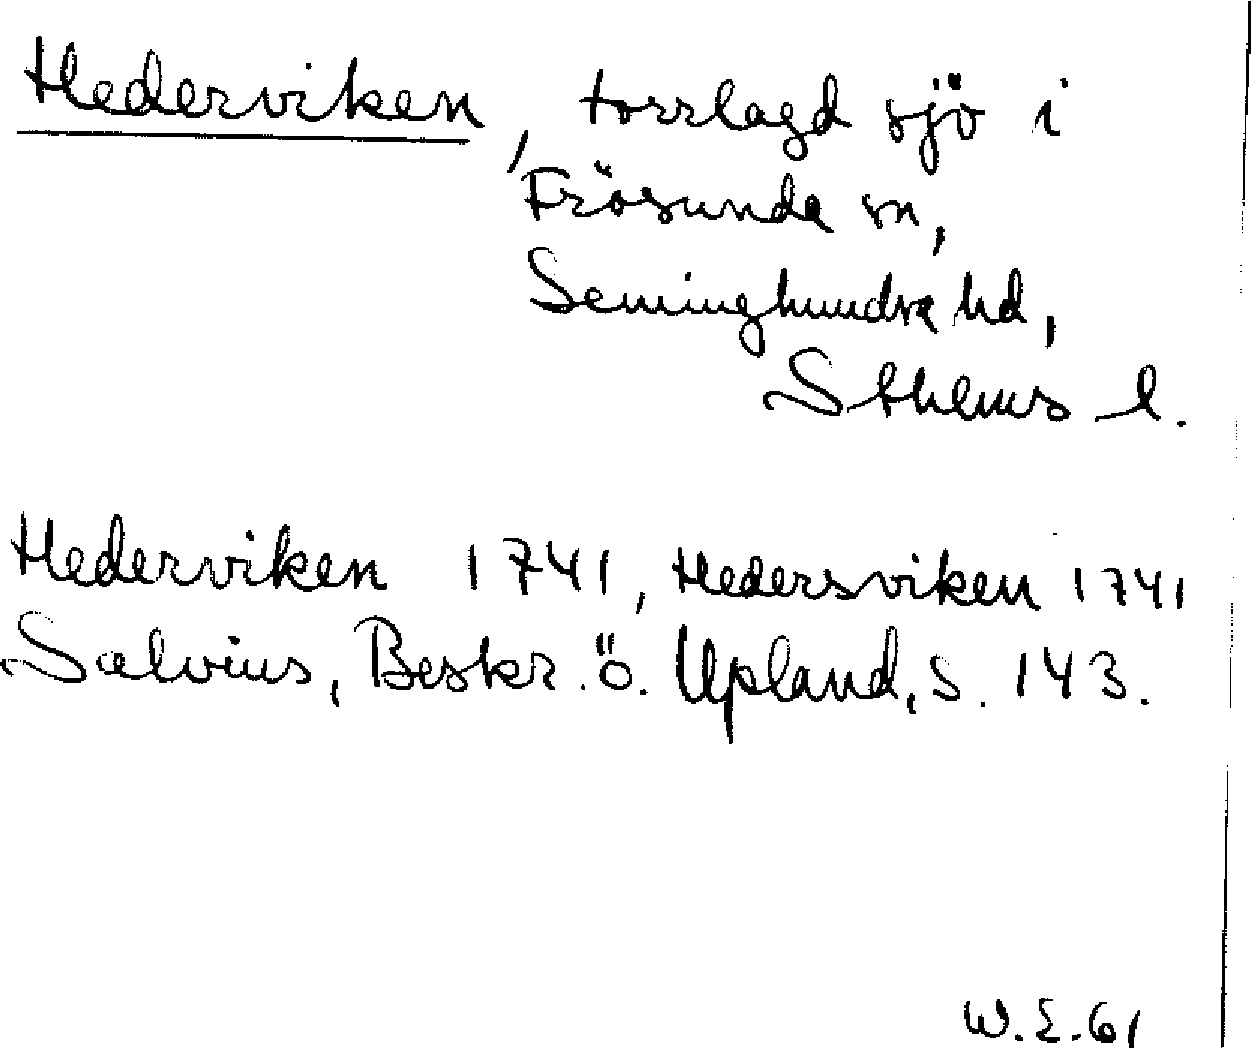 Hederviken, torrlagd sjö i
Frösunda sn,
Seminghundra hd,
Sthlms l.
Hederviken 1741, Hedersviken 1741
Salvius, Beskr. ö. Upland, s. 143.
W.E. 61